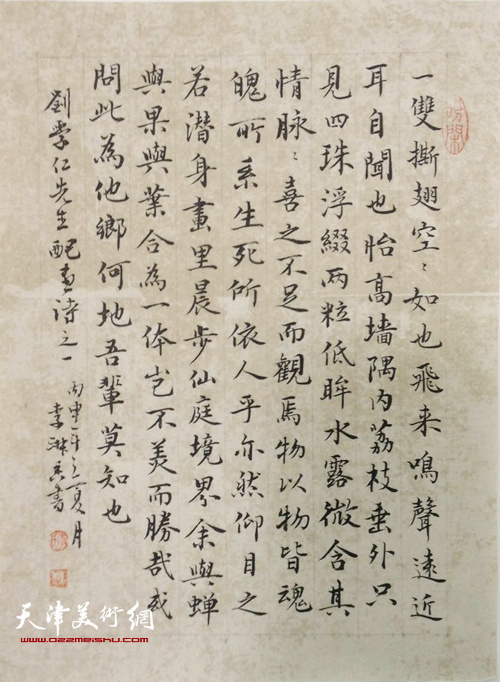 一雙撕翅空〻如也飛来鳴聲遠近
耳自聞也怡高墻隅内荔枝垂外只
見四珠浮綴两粒低眸水露微含其
情脉〻喜之不足而觀焉物以物皆魂
魄所系生死所依人乎亦然仰目之
若潜身畫里晨步仙庭境界余與蝉
與果與葉合為一体岂不美而勝哉或
問此為他鄉何地吾輩莫知也
劉學仁先生配畫诗之一
丙申年之夏月
李淋
書
天津美術網
www.022meishu.com